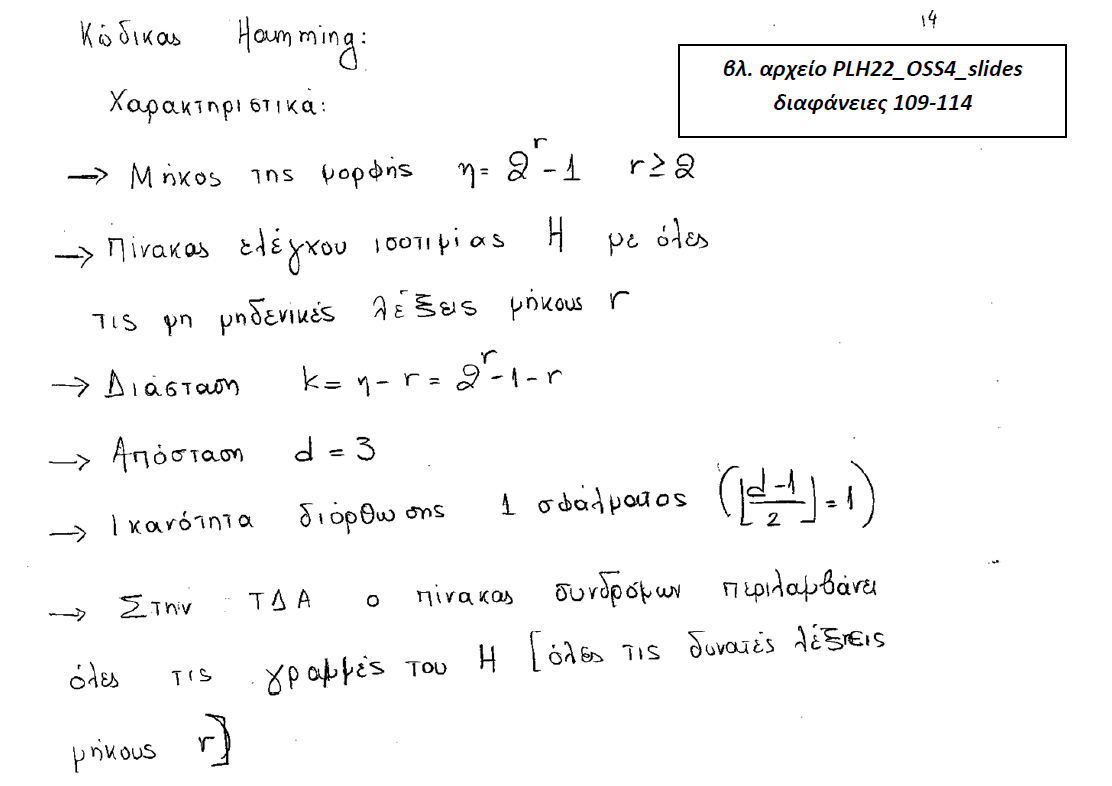 14
Κώδικας Hamming:
βλ. αρχείο PLH22_OSS4_slides
διαφάνειες 109-114
Χαρακτηριστικά:
→ Μήκος της μορφής η = 2^r - 1 r ≥ 2
→ Πίνακας ελέγχου ισοτιμίας H με όλες
τις μη μηδενικές λέξεις μήκους r
→ Διάσταση k = η - r = 2^r - 1 - r
→ Απόσταση d = 3
→ Ικανότητα διόρθωσης 1 σφάλματος (⌊(d-1)/2⌋ = 1)
→ Στην ΤΔΑ ο πίνακας συνδρόμων περιλαμβάνει
όλες τις γραμμές του H [όλες τις δυνατές λέξεις
μήκους r]